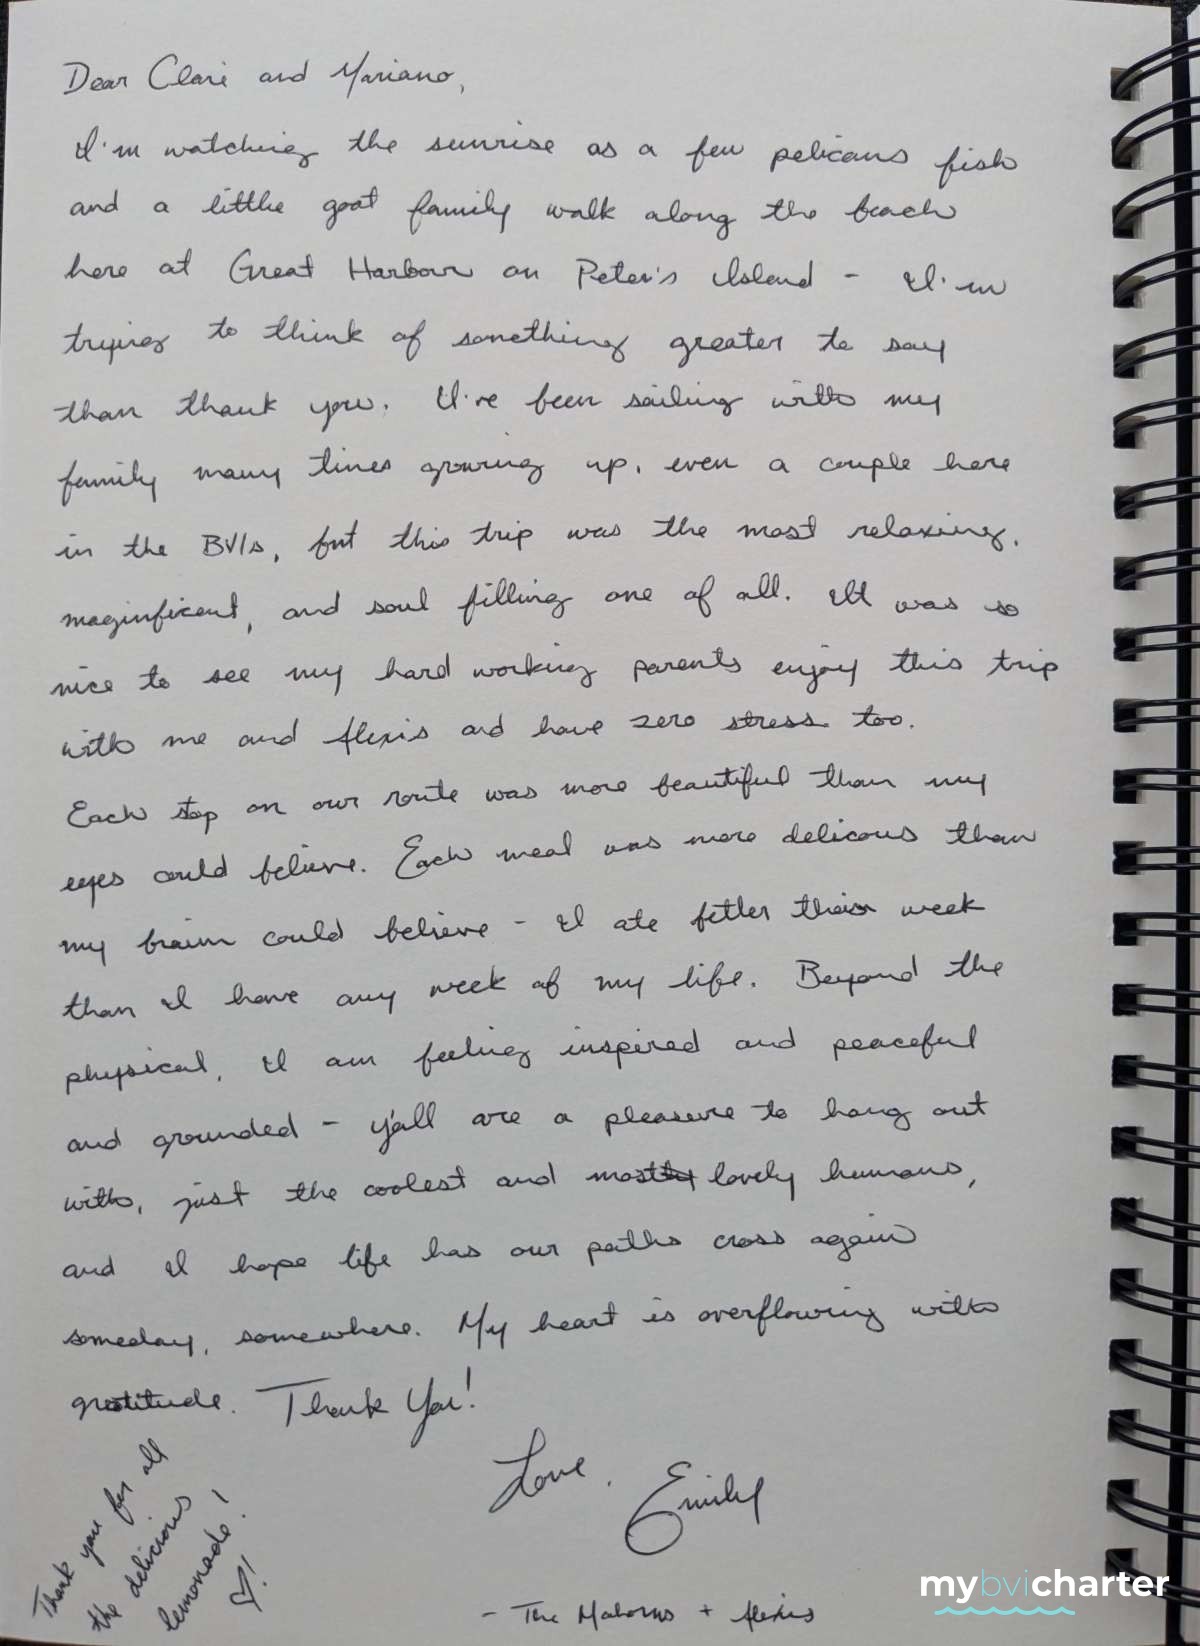 Dear Clare and Mariano,
I'm watching the sunrise as a few pelicans fish
and a little goat family walk along the beach
here at Great Harbour on Peter's Island - I'm
trying to think of something greater to say
than thank you. I've been sailing with my
family many times growing up, even a couple here
in the BVIs, but this trip was the most relaxing,
maginficent, and soul filling one of all. It was so
nice to see my hard working parents enjoy this trip
with me and Alexis and have zero stress too.
Each stop on our route was more beautiful than my
eyes could believe. Each meal was more delicous than
my brain could believe - I ate better this week
than I have any week of my life. Beyond the
physical, I am feeling inspired and peaceful
and grounded - y'all are a pleasure to hang out
with, just the coolest and lovely humans,
and I hope life has our paths cross again
someday, somewhere. My heart is overflowing with
gratitude. Thank You!
Love, Emily
Thank you for all
the delicious
lemonade!
♡!
- The + Alexis
mybvicharter